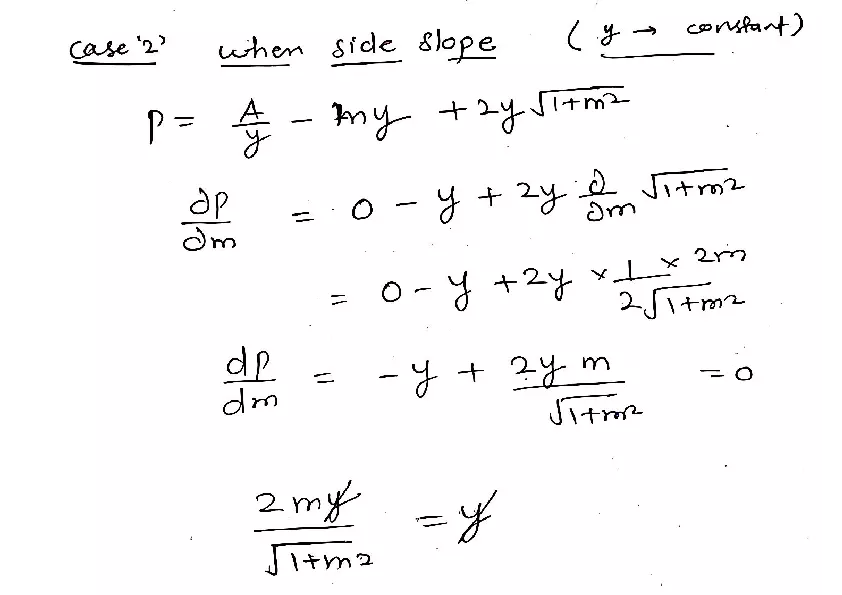 Case '2' when side slope ( y → constant)
P = A/y - my + 2y √1+m2
∂P/∂m = 0 - y + 2y ∂/∂m √1+m2
= 0 - y + 2y × 1/2√1+m2 × 2m
dP/dm = - y + 2y m/√1+m2 = 0
2my/√1+m2 = y